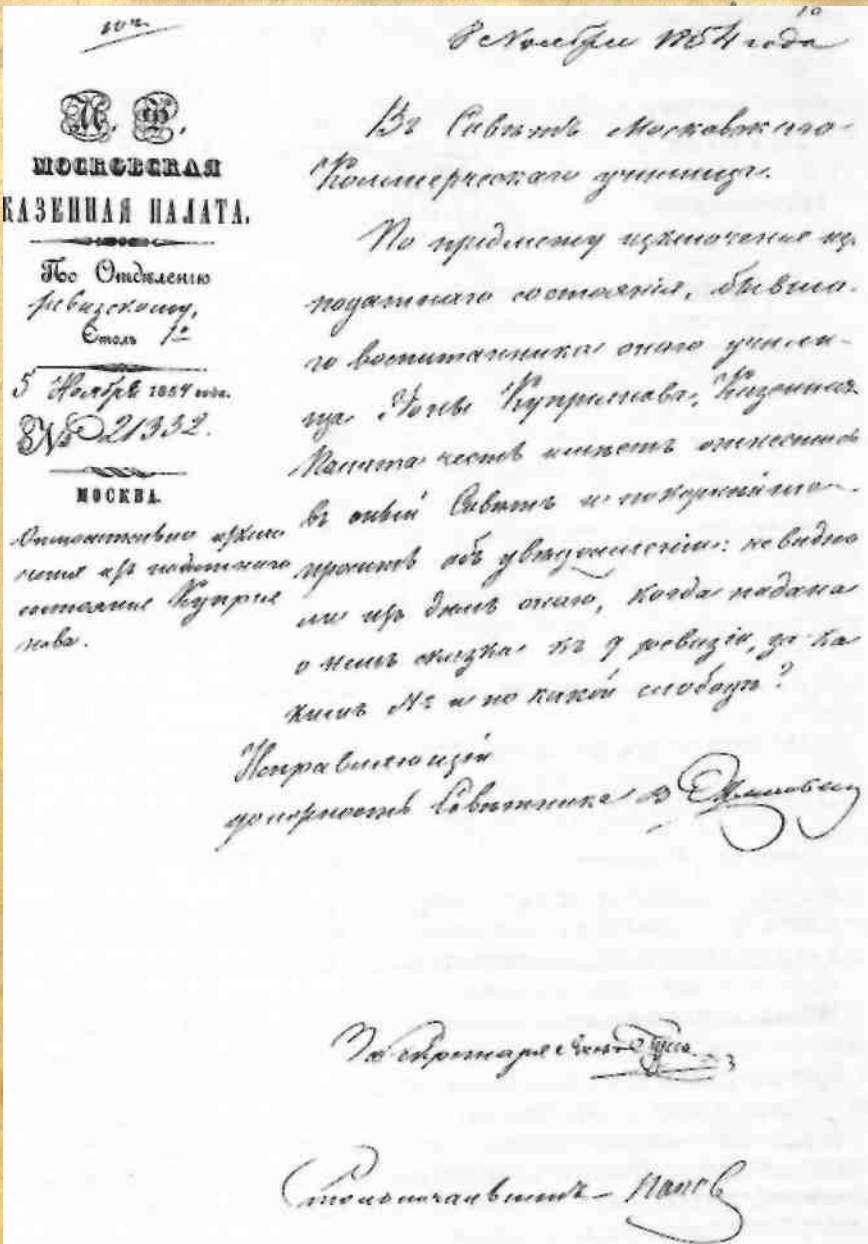 10
8 Ноября 1854 года
М. Ф.
МОСКОВСКАЯ
КАЗЕННАЯ ПАЛАТА.
По Отдѣленію
ревизскому,
Столъ 1º
5 Ноября 1854 года.
№ 21332.
МОСКВА.
Относительно исключе
нія изъ податнаго
состоянія Куприя
нова.
Въ Совѣтъ Московскаго
Коммерческаго училища.
По предмету исключенія изъ
податнаго состоянія, бывша-
го воспитанника онаго учили-
ща Куприянова, Казенная
Палата честь имѣетъ отнестись
въ оный Совѣтъ и покорнѣйше
проситъ объ увѣдомленіи: не видно
ли изъ дѣлъ онаго, когда подана
о немъ сказка къ 9 ревизіи, за ка
кимъ № и по какой слободѣ?
Исправляющій
должность Совѣтника
За Секретаря
Столоначальникъ Попов